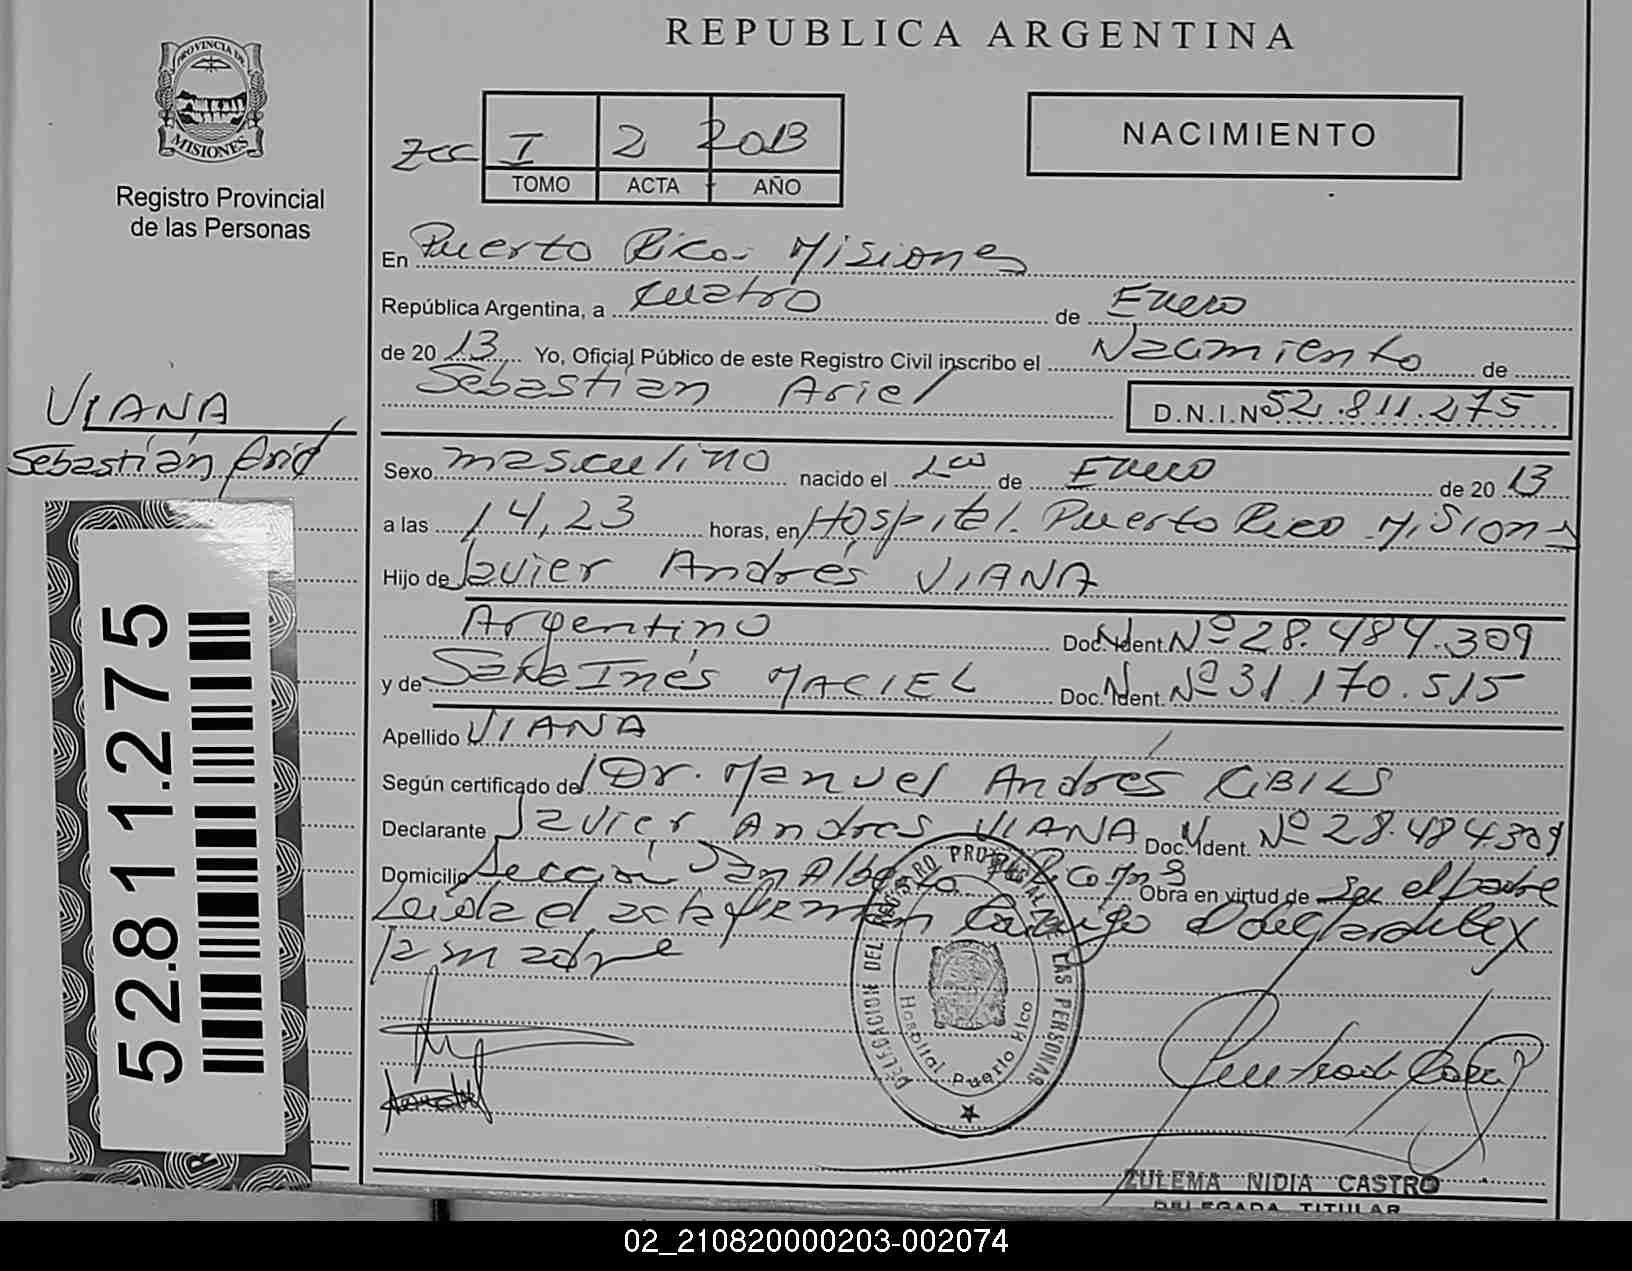 REPUBLICA ARGENTINA
PROVINCIA DE
MISIONES
Registro Provincial
de las Personas
I 2 2013
TOMO ACTA AÑO
NACIMIENTO
En Puerto Rico - Misiones
República Argentina, a cuatro de Enero
de 20 13 Yo, Oficial Público de este Registro Civil inscribo el Nacimiento de
Sebastián Ariel D.N.I.Nº 52.811.275
VIANA
Sebastián Ariel
Sexo masculino nacido el de Enero de 20 13
a las 14,23 horas, en Hospital. Puerto Rico Misiones
Hijo de Javier Andrés VIANA
Argentino Doc. Ident. Nº 28.484.309
y de Sara Inés MACIEL Doc. Ident. Nº 31.170.515
Apellido VIANA
Según certificado del Dr. Manuel Andrés
Declarante Javier Andrés VIANA Doc. Ident. Nº 28.484.309
Domicilio Sección San Alberto Obra en virtud de Ser el padre
Leída el acta firman
la madre
52.811.275
DELEGACION DEL REGISTRO PROVINCIAL DE LAS PERSONAS
Hospital Puerto Rico
ZULEMA NIDIA CASTRO
DELEGADA TITULAR
02_210820000203-002074